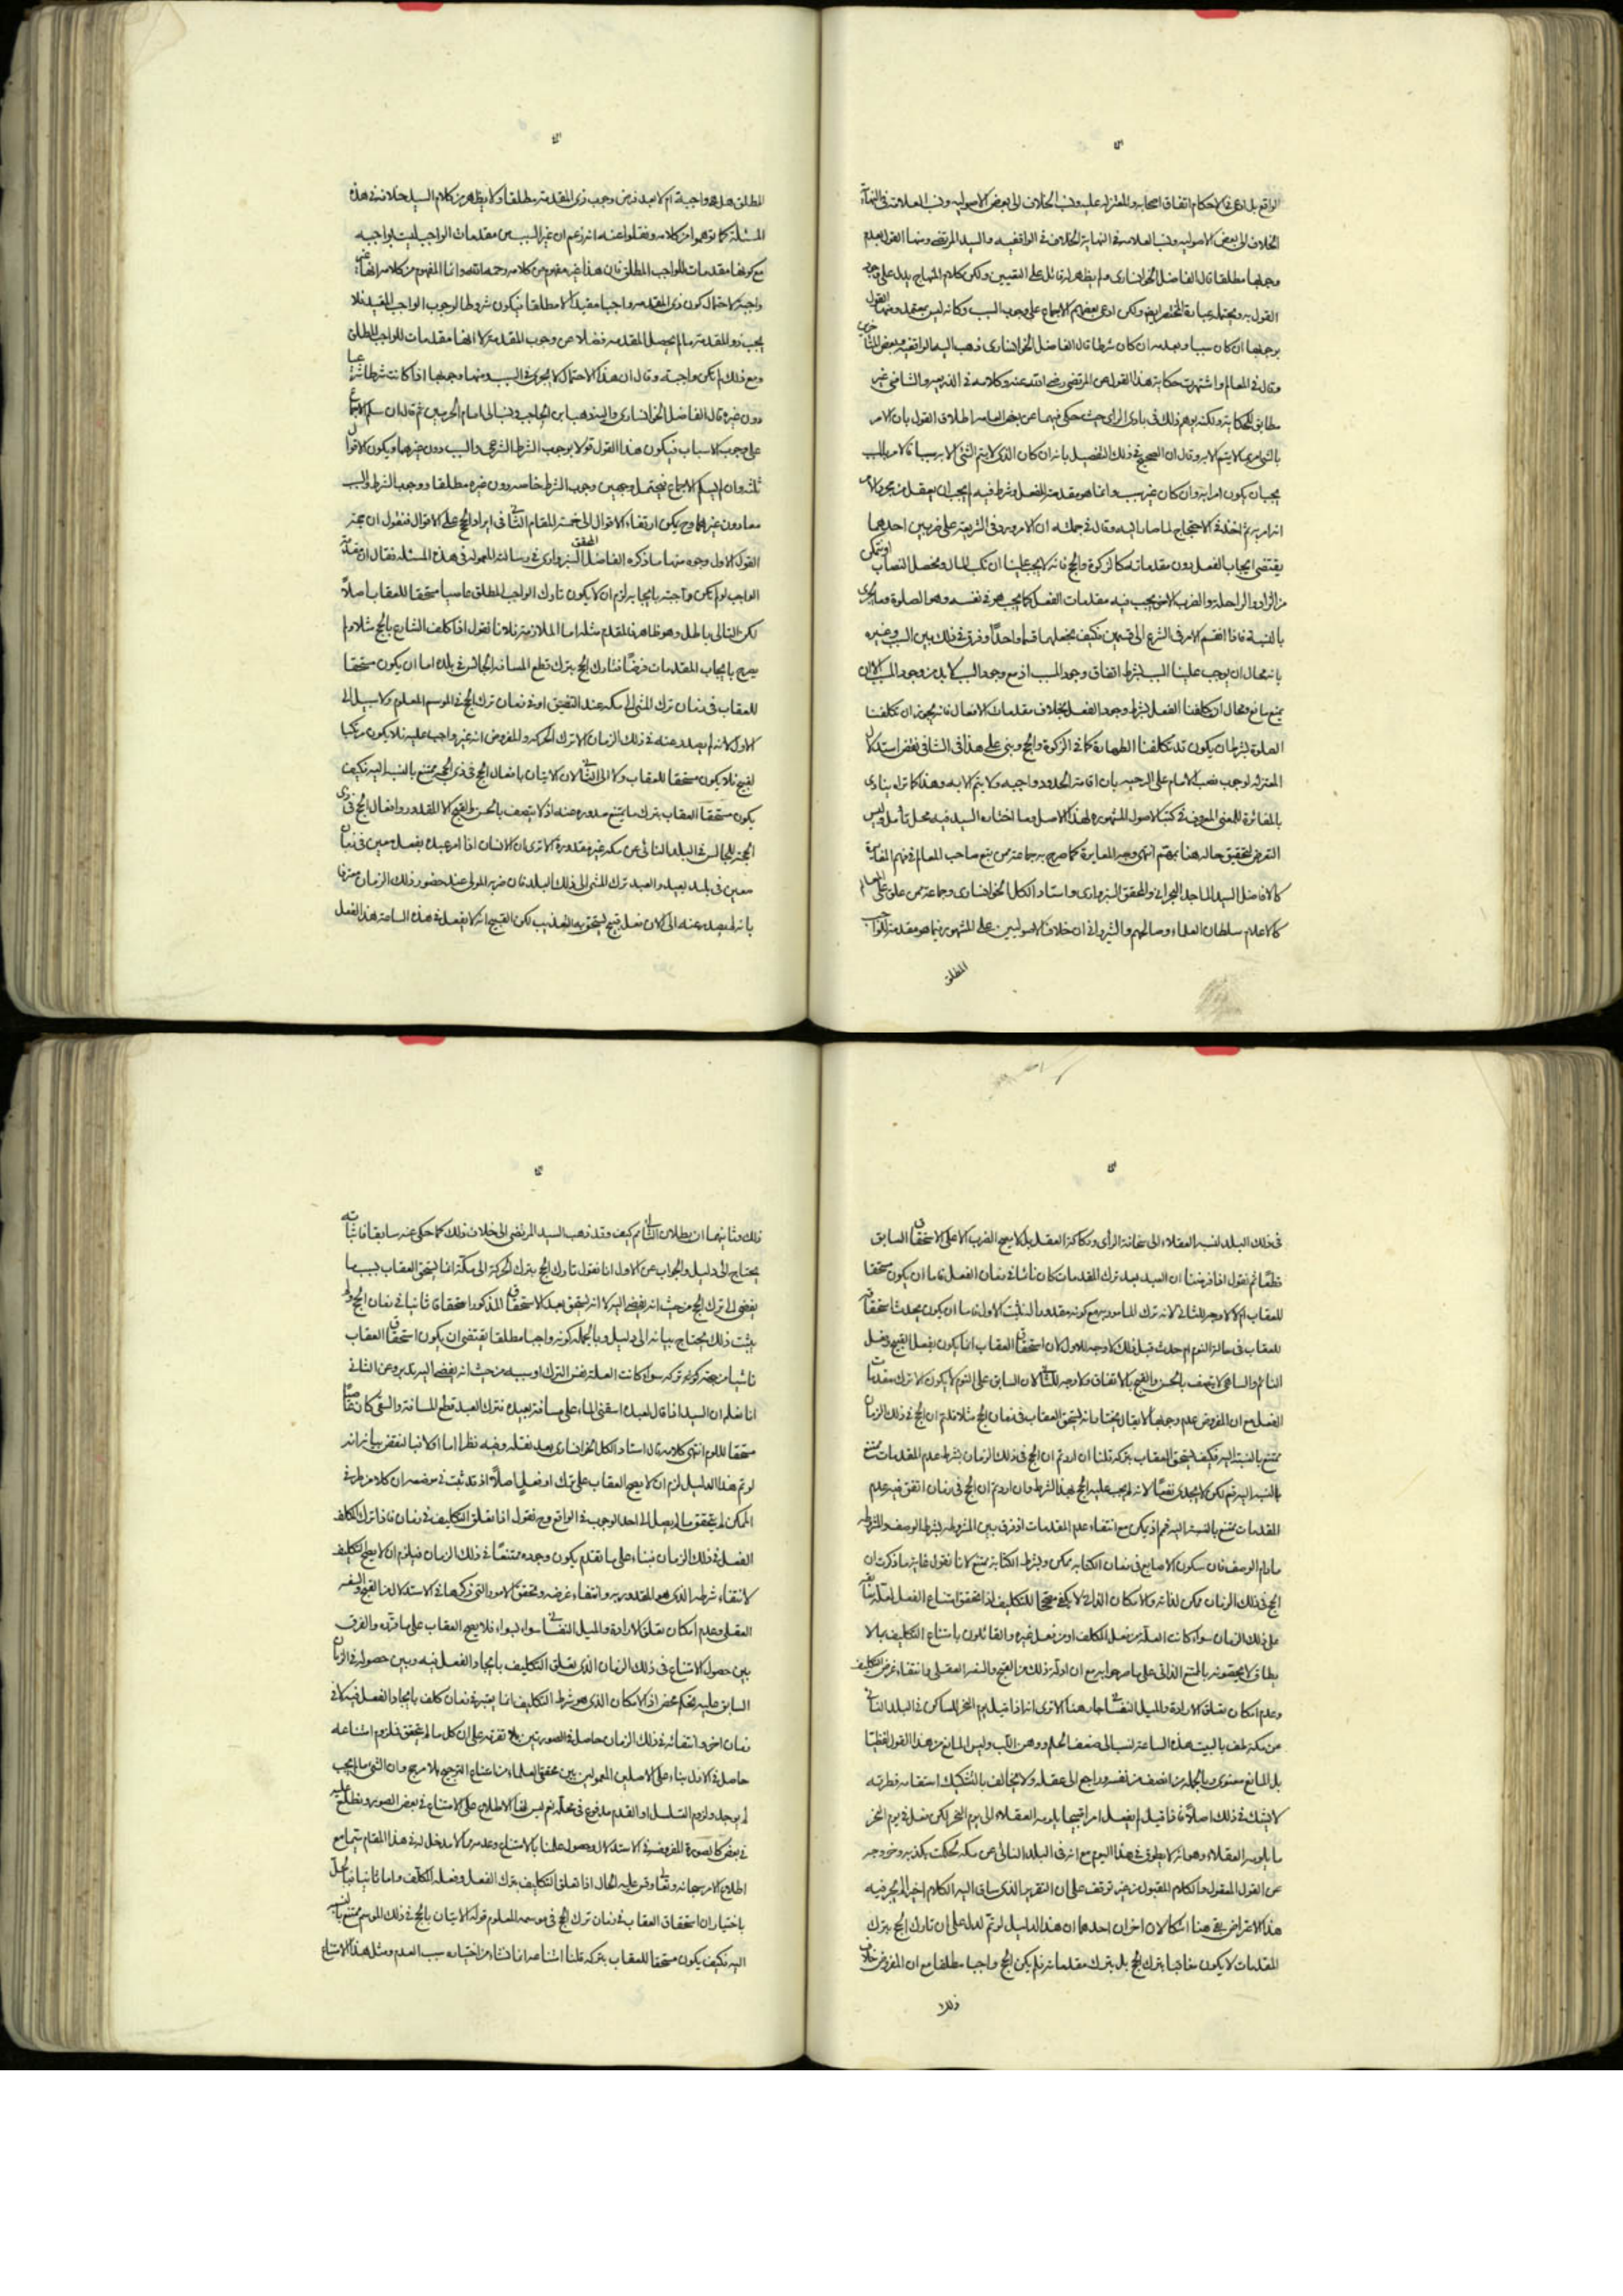 الواقع بل ادعى في الاحكام اتفاق اصحابه والمعتزله عليه ونسب الخلاف الى بعض الاصوليه ونسب العلامة في النهاية
الخلاف الى بعض الاصوليه ونسب العلامه في النهاية الخلاف في الواقفيه والسيد المرتضى ومنها القول بعدم
وجوبها مطلقا قال الفاضل الخوانسارى ولم يظهر له قائل على التعيين ولكن كلام المنهاج يدل على وجود
القول به ويحتمله عبارة المختصر ايضا ولكن ادعى بعضهم الاجماع على وجوب السبب وكانه ليس بمعتمد ومنها القول
بوجوبها ان كان سببا وعدمه ان كان شرطا قال الفاضل الخوانسارى ذهب اليه الواقفيه وبعض المتاخرين
وقال في المعالم واشتهرت حكاية هذا القول عن المرتضى رضي الله عنه وكلامه في الذريعه والشافي غير
مطابق للحكاية ولكنه يوهم ذلك في بادى الراى حيث حكى فيهما عن بعض العامه اطلاق القول بان الامر
بالشئ امر بما لا يتم الا به وقال ان الصحيح في ذلك التفصيل بانه ان كان الذى لا يتم الشئ الا به سببا فالامر بالمسبب
يجب ان يكون امرا به وان كان غير سبب وانما هو مقدمة للفعل وشرط فيه لم يجب ان يعقل من مجرد الامر
انه امر به ثم اخذ في الاحتجاج لما صار اليه وقال في جملته ان الامر ورد في الشريعة على ضربين احدهما
يقتضى ايجاب الفعل دون مقدماته كالزكوة والحج فانه لا يجب علينا ان نكتسب المال ونحصل النصاب او نتمكن
من الزاد والراحلة والضرب الاخر يجب فيه مقدمات الفعل كما يجب هو في نفسه وهو الصلوة وما جرى
بالنسبة فاذا انقسم الامر في الشرع الى قسمين فكيف نجعلهما قسما واحدا وفرق في ذلك بين السبب وغيره
بانه محال ان يوجب علينا المسبب بشرط اتفاق وجود السبب اذ مع وجود السبب لا بد من وجود المسبب الا ان
يمنع مانع ومحال ان يكلفنا الفعل بشرط وجود الفعل بخلاف مقدمات الافعال فانه يجوز ان يكلفنا
الصلوة بشرط ان يكون قد تكلفنا الطهارة كما في الزكوة والحج وبنى على هذا في الشافي نقض استدلال
المعتزله لوجوب نصب الامام على الرعيه بان اقامة الحدود واجبه ولا يتم الا به وهذا كما تراه ينادى
بالمغائرة للمعنى المعروف في كتب الاصول المشهوره لهذا الاصل وما اختاره السيد فيه محل تامل وليس
التعرض لتحقيق حاله هنا بمهم انتهى ووجه المغايرة كما صرح به جماعة ممن تبع صاحب المعالم في فهم المغايرة
كالافاضل السيد الماجد البحراني والمحقق السبزوارى واستاد الكل الخوانسارى وجماعة ممن علق على المعالم
كالاعلام سلطان العلماء وصالحهم والشيروانى ان خلاف الاصوليين على المشهور فيما هو مقدمة للواجب
المطلق
المطلق هل هو واجبة ام لا بعد فرض وجوب ذى المقدمة مطلقا ولا يظهر من كلام السيد خلافه في هذه
المسئلة كما توهموا من كلامه ونقلوا عنه انه زعم ان غير السبب من مقدمات الواجب ليست بواجبه
مع كونها مقدمات للواجب المطلق فان هذا غير مفهوم من كلامه رحمه الله وانما المفهوم من كلامه انها غير
واجبة لاحتمال كون ذى المقدمه واجبا مقيدا لا مطلقا فيكون شروطا لوجوب الواجب المقيد فلا
يجب ذو المقدمة ما لم يحصل المقدمه فضلا عن وجوب المقدمة لا انها مقدمات للواجب المطلق
ومع ذلك لم تكن واجبة وقال ان هذا الاحتمال لا يجرى في السبب ومنها وجوبها اذا كانت شرطا شرعيا
دون غيره قال الفاضل الخوانسارى واليه ذهب ابن الحاجب ونسب الى امام الحرمين ثم قال ان سلم الاجماع
على وجوب الاسباب فيكون هذا القول قولا بوجوب الشرط الشرعى والسبب دون غيرهما ويكون الاقوال
ثلثة وان لم يسلم الاجماع فيحتمل وجهين وجوب الشرط خاصه دون غيره مطلقا ووجوب الشرط والسبب
معا دون غيرهما وح يكون ارتقاء الاقوال الى خمسة المقام الثانى في ايراد الحجج على الاقوال فنقول ان حجة
القول الاول وجوه منها ما ذكره الفاضل المحقق السبزوارى في رسالته المعموله في هذه المسئله فقال ان مقدمة
الواجب لو لم تكن واجبة بايجابه لزم ان لا يكون تارك الواجب المطلق عاصيا مستحقا للعقاب اصلا
لكن التالى باطل وهو ظاهر فالمقدم مثله اما الملازمة فلانا نقول اذا كلف الشارع بالحج مثلا ولم
يصرح بايجاب المقدمات فرضا فتارك الحج بترك قطع المسافه الجالس في بلده اما ان يكون مستحقا
للعقاب في زمان ترك المشى الى مكه عند التضيق او في زمان ترك الحج في الموسم المعلوم ولا سبيل الى
الاول لانه لم يصدر عنه في ذلك الزمان الا ترك الحركه والمفروض انه غير واجب عليه فلا يكون مرتكبا
لقبيح فلا يكون مستحقا للعقاب ولا الى الثانى لان الاتيان بافعال الحج في ذى الحجه ممتنع بالنسبة اليه فكيف
يكون مستحقا للعقاب بترك ما يمتنع صدوره عنه اذ لا يتصف بالحسن والقبح الا المقدور وافعال الحج في ذى
الحجة للجالس في البلد النائى عن مكه غير مقدورة الا ترى ان الانسان اذا امر عبده بفعل معين في زمان
معين في بلد بعيد والعبد ترك المشى الى ذلك البلد فان ضربه المولى عند حضور ذلك الزمان معترفا
بانه لم يصدر عنه الى الان فعل قبيح يستحق به التعذيب لكن القبيح انه لا يفعل في هذه الساعة هذا الفعل
في ذلك البلد لنسبه العقلاء الى سخافة الراى وركاكة العقل بل لا يصح الضرب الا على الاستحقاق السابق
قطعا ثم نقول اذا فرضنا ان العبد بعد ترك المقدمات كان نائما في زمان الفعل فاما ان يكون مستحقا
للعقاب ام لا لا وجه للثانى لانه ترك المامور به مع كونه مقدورا فثبت الاول فاما ان يكون يحدث استحقاق
للعقاب في حالة النوم ام حدث قبل ذلك لا وجه للاول لان استحقاق العقاب انما يكون بفعل القبيح وفعل
النائم والساهى لا يتصف بالحسن والقبح بالاتفاق ولا وجه للثانى لان السابق على النوم لا يكون الا ترك مقدمات
الفعل مع ان المفروض عدم وجوبها لا يقال يختار بانه يستحق العقاب في زمان الحج مثلا قلتم ان الحج في ذلك الزمان
ممتنع بالنسبة اليه فكيف يستحق العقاب بتركه قلنا ان اردتم ان الحج في ذلك الزمان بشرط عدم المقدمات ممتنع
بالنسبه اليه فنعم لكن لا يجدى نفعا لانه لم يجب عليه الحج بهذا الشرط وان اردتم ان الحج في زمان اتفق فيه عدم
المقدمات ممتنع بالنسبة اليه فمم اذ يمكن مع انتفاء عدم المقدمات اذ فرق بين المشروطه بشرط الوصف والمشروطه
ما دام الوصف فان سكون الاصابع في زمان الكتابه ممكن وبشرط الكتابة ممتنع لانا نقول غاية ما ذكرت ان
الحج في ذلك الزمان ممكن لذاته والامكان الذاتى لا يكفى مصححا للتكليف اذا تحقق امتناع الفعل لعلة سابقه
على ذلك الزمان سواء كانت العلة من فعل المكلف او من فعل غيره والقائلون بامتناع التكليف بما لا
يطاق لا يخصونه بالممتنع الذاتى على ما صرحوا به مع ان ادلة ذلك من القبح والسفه العقلى وانتفاء غرض التكليف
وعدم امكان تعلق الارادة والميل النفسانى جار هنا الا ترى انه اذا قيل يوم النحر للساكن في البلد النائى
عن مكة طف بالبيت هذه الساعة لنسب الى ضعف الحلم ووهن اللب وليس المانع من هذا القول لفظيا
بل المانع معنوى وبالجمله من انصف من نفسه وراجع الى عقله ولا يخالف بالتشكيك استقامه فطرته
لا يشك في ذلك اصلا فاذا قيل لم يفعل امرا قبيحا يلومه العقلاء الى يوم النحر لكن فعل في يوم النحر
ما يلومه العقلاء وهو انه لا يطوف في هذا اليوم مع انه في البلد النائى عن مكه لحكمت بكذبه وخروجه
عن القول المعقول والكلام المقبول من غير توقف على ان التقريب الذى ساق اليه الكلام اخيرا لا يجرى فيه
هذا الاعتراض بقى هنا اشكالان اخران احدهما ان هذا الدليل لو تم لدل على ان تارك الحج بترك
المقدمات لا يكون معاقبا بترك الحج بل بترك مقدماته فلم يكن الحج واجبا مطلقا مع ان المفروض خلاف
ذلك
ذلك وثانيهما ان بطلان التالى مم كيف وقد ذهب السيد المرتضى الى خلاف ذلك كما حكى عنه سابقا فاثباته
يحتاج الى دليل والجواب عن الاول انا نقول تارك الحج بترك الحركة الى مكة انما يستحق العقاب بسبب ما
يفضى الى ترك الحج من حيث انه يفضى اليه لا انه يستحق بعد الاستحقاق المذكور استحقاقا ثانيا في زمان الحج ولم
يثبت ذلك يحتاج بيانه الى دليل وبالجمله كونه واجبا مطلقا يقتضى ان يكون استحقاق العقاب
ناشيا من جهة كونه تركه سواء كانت العلة نفس الترك او سببه من حيث انه يفضى اليه تدبر وعن الثانى
انا نعلم ان السيد اذا قال لعبده اسقنى الماء على مسافة بعيده فترك العبد قطع المسافة والسقى كان عاصيا
مستحقا للذم انتهى كلامه قال استاد الكل الخوانسارى بعد نقله وفيه نظر اما اولا فبالنقض بيانه انه
لو تم هذا الدليل لزم ان لا يصح العقاب على ترك او فعل اصلا اذ قد ثبت في موضعه ان كلا من طرفى
الممكن لم يتحقق ما لم يصل الى حد الوجوب في الواقع وح نقول اذا تعلق التكليف في زمان فاذا ترك المكلف
الفعل في ذلك الزمان فبناء على ما تقدم يكون وجوده ممتنعا في ذلك الزمان فيلزم ان لا يصح التكليف
لانتفاء شرطه الذى هو المقدورية وانتفاء غرضه وتحقق الامور التى ذكرها في الاستدلال من القبح والسفه
العقلى وعدم امكان تعلق الارادة والميل النفسانى سواء بسواء فلا يصح العقاب على ما قرره والفرق
بين حصول الامتناع في ذلك الزمان الذى تعلق التكليف بايجاد الفعل فيه وبين حصوله في الزمان
السابق عليه تحكم محض اذ الامكان الذى هو شرط التكليف انما يعتبر في زمان كلف بايجاد الفعل فيه لا في
زمان اخر وانتفائه في ذلك الزمان حاصل في الصورتين بلا تفرقه على ان كل ما لم يتحقق فلزوم امتناعه
حاصل في الازل بناء على الاصلين المعمولين بين محققى العلماء من امتناع الترجيح بلا مرجح وان الشئ ما لم يجب
لم يوجد ولزوم التسلسل او القدم مدفوع في محله نعم ليس لنا الاطلاع على الامتناع في بعض الصور ونطلع عليه
في بعض كالصورة المفروضه في الاستدلال وحصول علمنا بالامتناع وعدمه مما لا مدخل له في هذا المقام سيما مع
اطلاع الامر سبحانه وتعالى وقوعه عليه الحال اذا تعلق التكليف بترك الفعل وفعله المكلف واما ثانيا فبالحل
باختيار ان استحقاق العقاب في زمان ترك الحج في موسمه المعلوم قوله الاتيان بالحج في ذلك الموسم ممتنع بالنسبه
اليه فكيف يكون مستحقا للعقاب بتركه قلنا امتناعه انما نشاء من اختياره سبب العدم ومثل هذا الامتناع